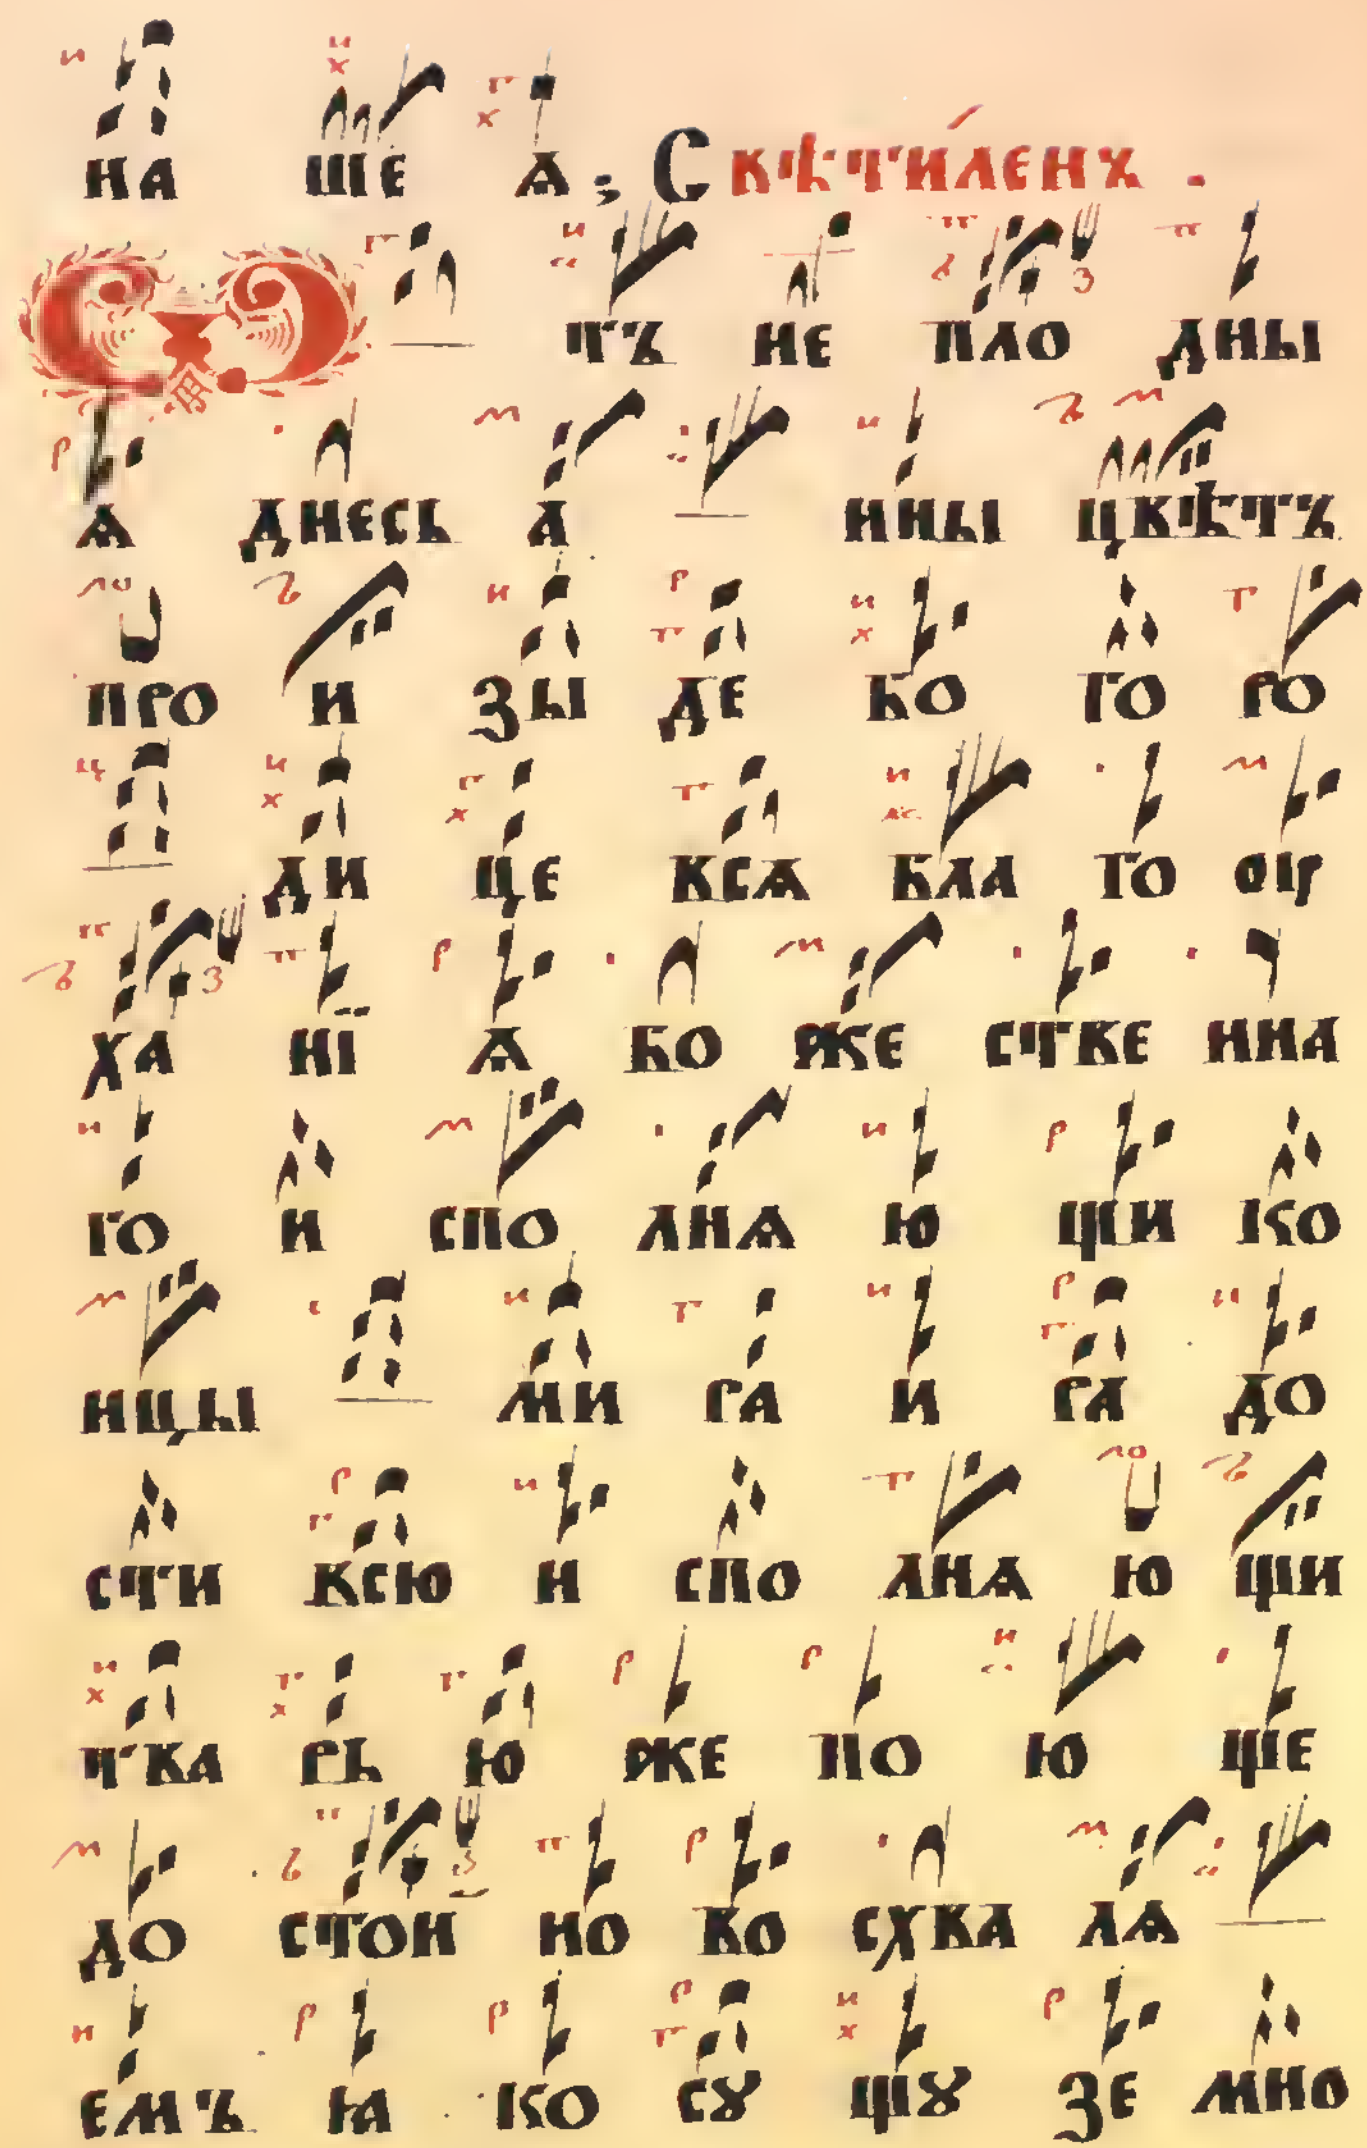 на ше ѧ; Свѣтиленъ.
О тъ не пло дны
ѧ днесь а нны цвѣтъ
про и зы де бо го ро
ди це всѧ бла го оу
ха нї ѧ бо же стве нна
го и спо лнѧ ю щи ко
нцы ми ра и ра до
сти всю и спо лнѧ ю щи
тва рь ю же по ю ще
до стои но во схва лѧ
емъ ꙗ ко сꙋ щꙋ зе мно